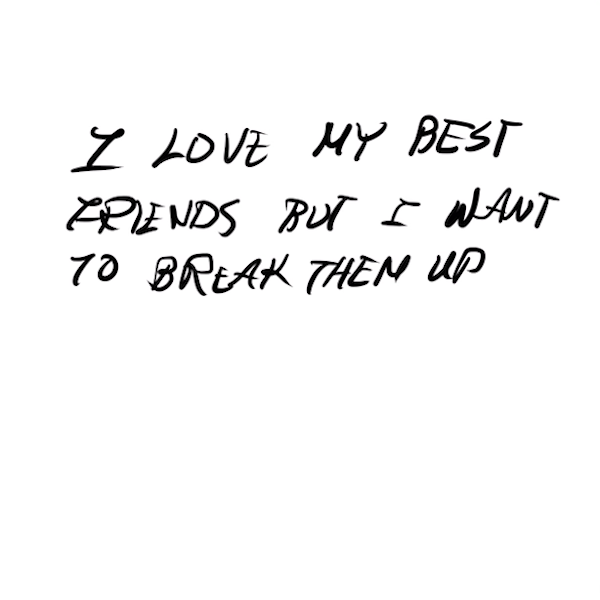 I LOVE MY BEST
FRIENDS BUT I WANT
TO BREAK THEM UP